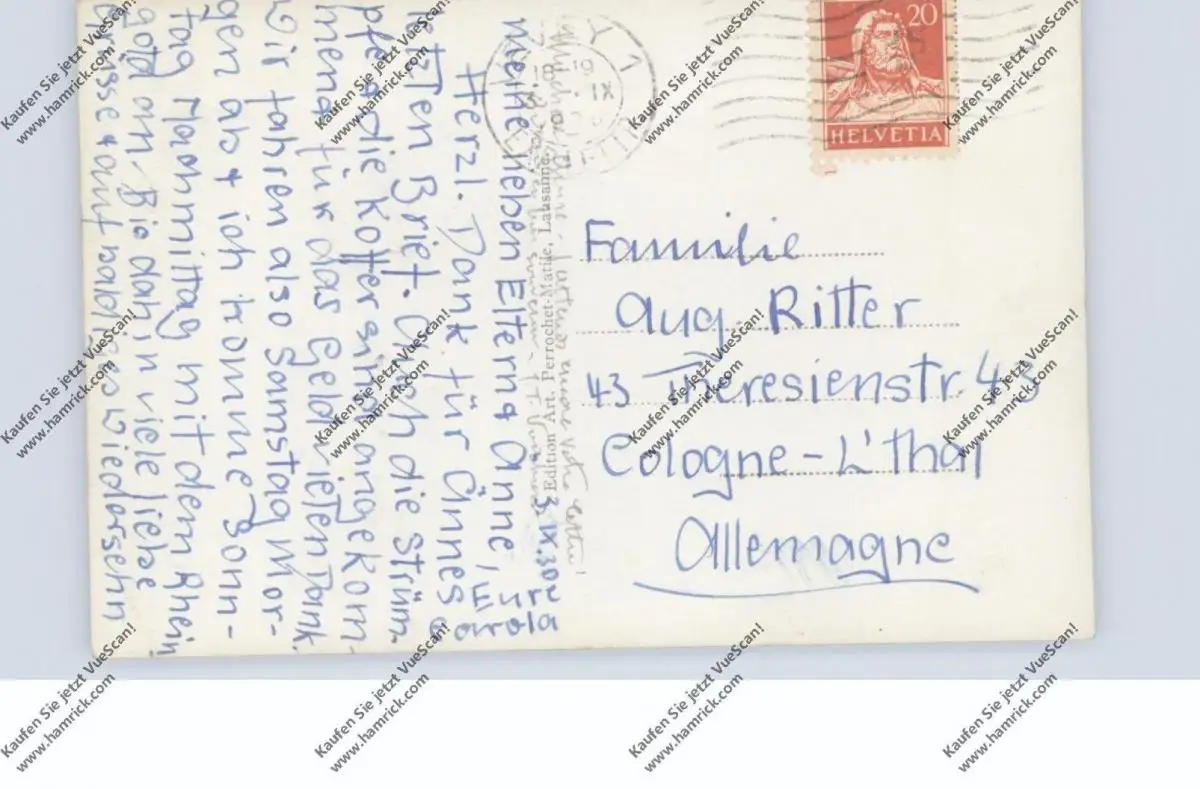 meine lieben Eltern & Änne,
Herzl. Dank für Ännes
letzten Brief. Auch die Strüm-
pfe & die Koffer sind angekom-
men & für das Geld vielen Dank.
Wir fahren also Samstag Mor-
gen ab & ich komme Sonn-
tag Nachmittag mit dem Rhein
gold an. Bis dahin viele liebe
Grüsse & auf baldiges Wiedersehn
Eure
Carola
3. IX. 30
Edition Art. Perrochet-Matile, Lausanne.
20
HELVETIA
Familie
Aug. Ritter
43 Theresienstr. 43
Cologne-L'thal
Allemagne
Kaufen Sie jetzt VueScan!
www.hamrick.com